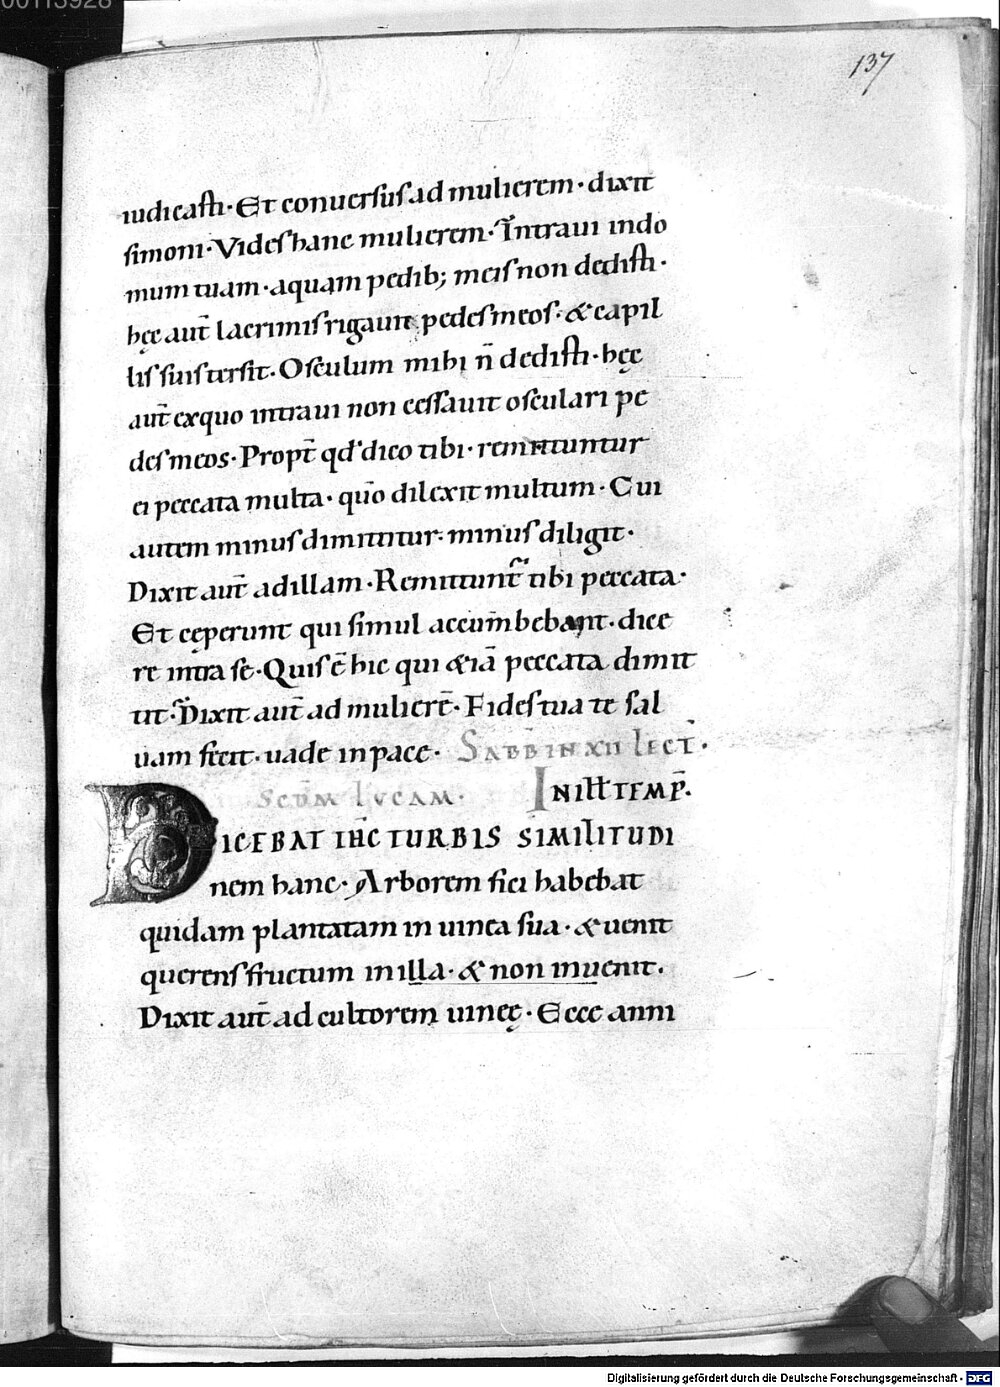 00113928
137
iudicasti· Et conuersus ad mulierem· dixit
simoni· Vides hanc mulierem· Intraui indo
mum tuam· aquam pedib; meis non dedisti·
hęc aut̄ lacrimis rigauit pedes meos· & capil
lis suis tersit· Osculum mihi n̄ dedisti· hęc
aut̄ exquo intraui non cessauit osculari pe
des meos· Propt̄ qđ dico tibi· remittuntur
ei peccata multa· quō dilexit multum· Cui
autem minus dimittitur· minus diligit·
Dixit aut̄ ad illam· Remittunt᷑ tibi peccata·
Et cęperunt qui simul accumbebant· dice
re intra se· Quis ē hic qui & iā peccata dimit
tit· Dixit aut̄ ad mulierē· Fides tua te sal
uam fecit· uade in pace· SABB̄ IN XII LECT̄·
SCD̄M LVCAM· IN ILL TEMP̄·
DICEBAT IHC TURBIS SIMILITUDI
nem hanc· Arborem fici habebat
quidam plantatam in uinea sua· & uenit
querens fructum in illa· & non inuenit·
Dixit aut̄ ad cultorem uineę· Ecce anni
Digitalisierung gefördert durch die Deutsche Forschungsgemeinschaft - DFG